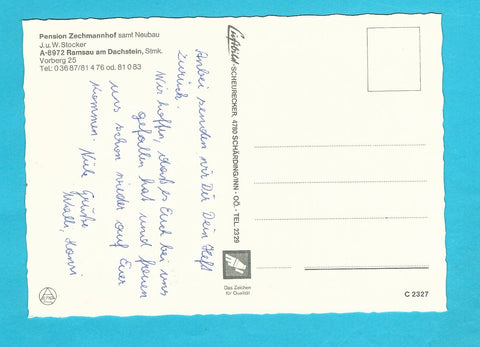 Pension Zechmannhof samt Neubau
J. u. W. Stocker
A-8972 Ramsau am Dachstein, Stmk.
Vorberg 25
Tel.: 0 36 87/81 4 76 od. 81 0 83
Anbei senden wir Dir Dein Heft
zurück.
Wir hoffen, dass es Euch bei uns
gefallen hat und freuen
uns schon wieder auf Euer
Kommen.
Viele Grüße
Walli, Hansi
Luftbild-SCHEURECKER, 4780 SCHÄRDING/INN - OÖ. - TEL. 2329
Das Zeichen
für Qualität
C 2327